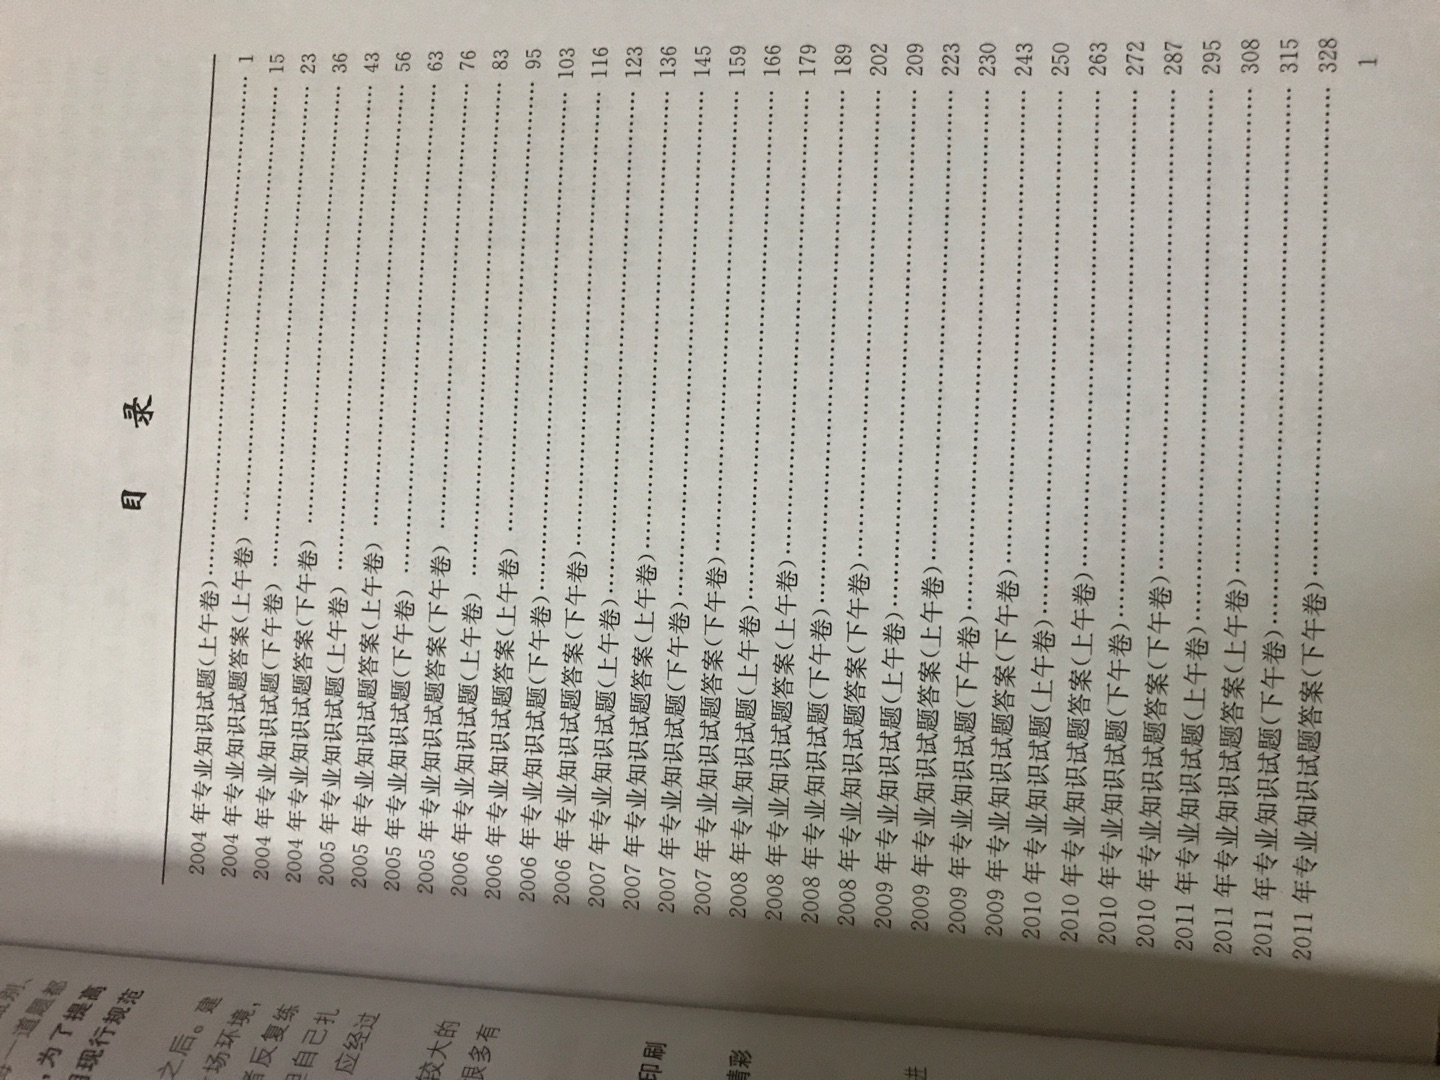 目 录
2004 年专业知识试题(上午卷)…… 1
2004 年专业知识试题答案(上午卷)…… 15
2004 年专业知识试题(下午卷)…… 23
2004 年专业知识试题答案(下午卷)…… 36
2005 年专业知识试题(上午卷)…… 43
2005 年专业知识试题答案(上午卷)…… 56
2005 年专业知识试题(下午卷)…… 63
2005 年专业知识试题答案(下午卷)…… 76
2006 年专业知识试题(上午卷)…… 83
2006 年专业知识试题答案(上午卷)…… 95
2006 年专业知识试题(下午卷)…… 103
2006 年专业知识试题答案(下午卷)…… 116
2007 年专业知识试题(上午卷)…… 123
2007 年专业知识试题答案(上午卷)…… 136
2007 年专业知识试题(下午卷)…… 145
2007 年专业知识试题答案(下午卷)…… 159
2008 年专业知识试题(上午卷)…… 166
2008 年专业知识试题答案(上午卷)…… 179
2008 年专业知识试题(下午卷)…… 189
2008 年专业知识试题答案(下午卷)…… 202
2009 年专业知识试题(上午卷)…… 209
2009 年专业知识试题答案(上午卷)…… 223
2009 年专业知识试题(下午卷)…… 230
2009 年专业知识试题答案(下午卷)…… 243
2010 年专业知识试题(上午卷)…… 250
2010 年专业知识试题答案(上午卷)…… 263
2010 年专业知识试题(下午卷)…… 272
2010 年专业知识试题答案(下午卷)…… 287
2011 年专业知识试题(上午卷)…… 295
2011 年专业知识试题答案(上午卷)…… 308
2011 年专业知识试题(下午卷)…… 315
2011 年专业知识试题答案(下午卷)…… 328
1
一道题都
,为了提高
现行规范
之后。建
场环境,
反复练
自己扎
应经过
较大的
很多有
印刷
精彩
进